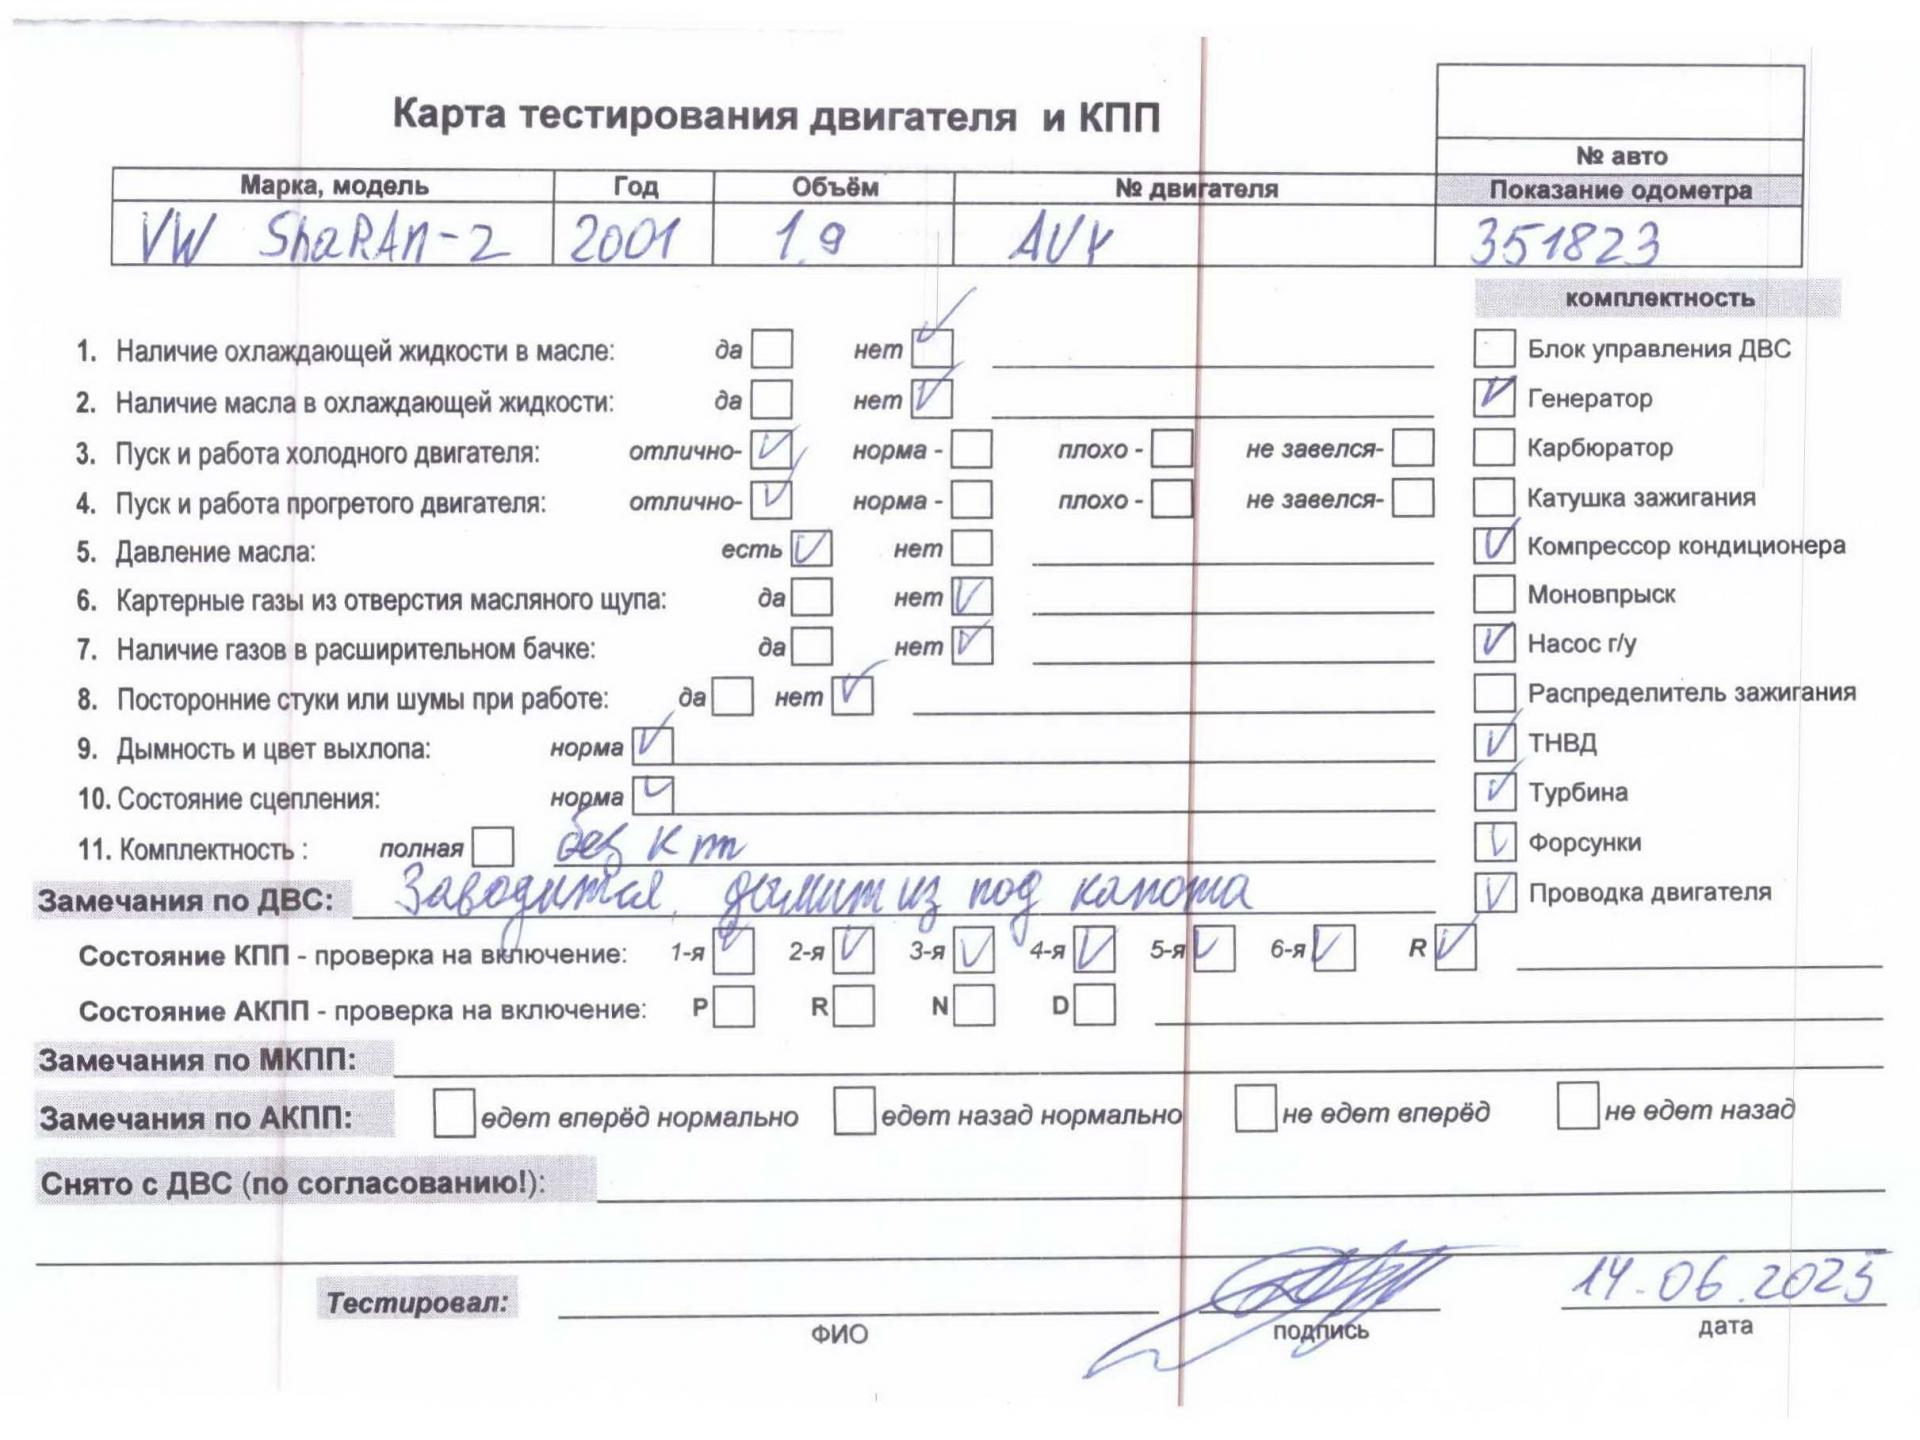 Карта тестирования двигателя и КПП
№ авто
Марка, модель Год Объём № двигателя Показание одометра
VW ShaRAn-2 2001 1.9 AUY 351823
комплектность
1. Наличие охлаждающей жидкости в масле: да нет
Блок управления ДВС
2. Наличие масла в охлаждающей жидкости: да нет
Генератор
3. Пуск и работа холодного двигателя: отлично- норма - плохо - не завелся-
Карбюратор
4. Пуск и работа прогретого двигателя: отлично- норма - плохо - не завелся-
Катушка зажигания
5. Давление масла: есть нет
Компрессор кондиционера
6. Картерные газы из отверстия масляного щупа: да нет
Моновпрыск
7. Наличие газов в расширительном бачке: да нет
Насос г/у
8. Посторонние стуки или шумы при работе: да нет
Распределитель зажигания
9. Дымность и цвет выхлопа: норма
ТНВД
10. Состояние сцепления: норма
Турбина
11. Комплектность : полная без кпп
Форсунки
Замечания по ДВС: Заводится, дымит из под капота
Проводка двигателя
Состояние КПП - проверка на включение: 1-я 2-я 3-я 4-я 5-я 6-я R
Состояние АКПП - проверка на включение: P R N D
Замечания по МКПП:
Замечания по АКПП: едет вперёд нормально едет назад нормально не едет вперёд не едет назад
Снято с ДВС (по согласованию!):
Тестировал: 14.06.2025
ФИО подпись дата